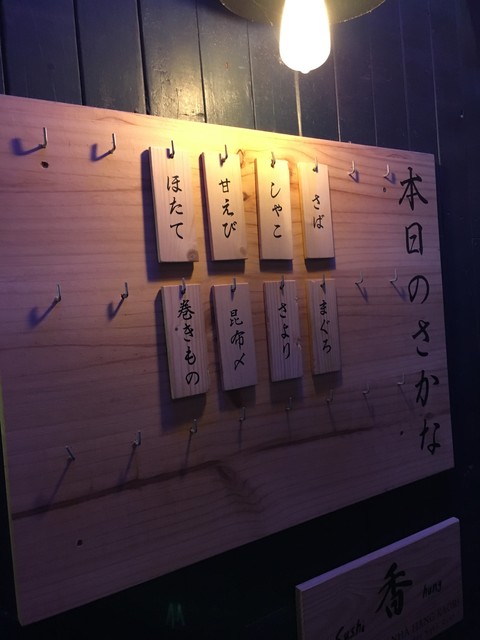 本日のさかな
さば
しゃこ
甘えび
ほたて
まぐろ
さより
昆布〆
巻きもの
香